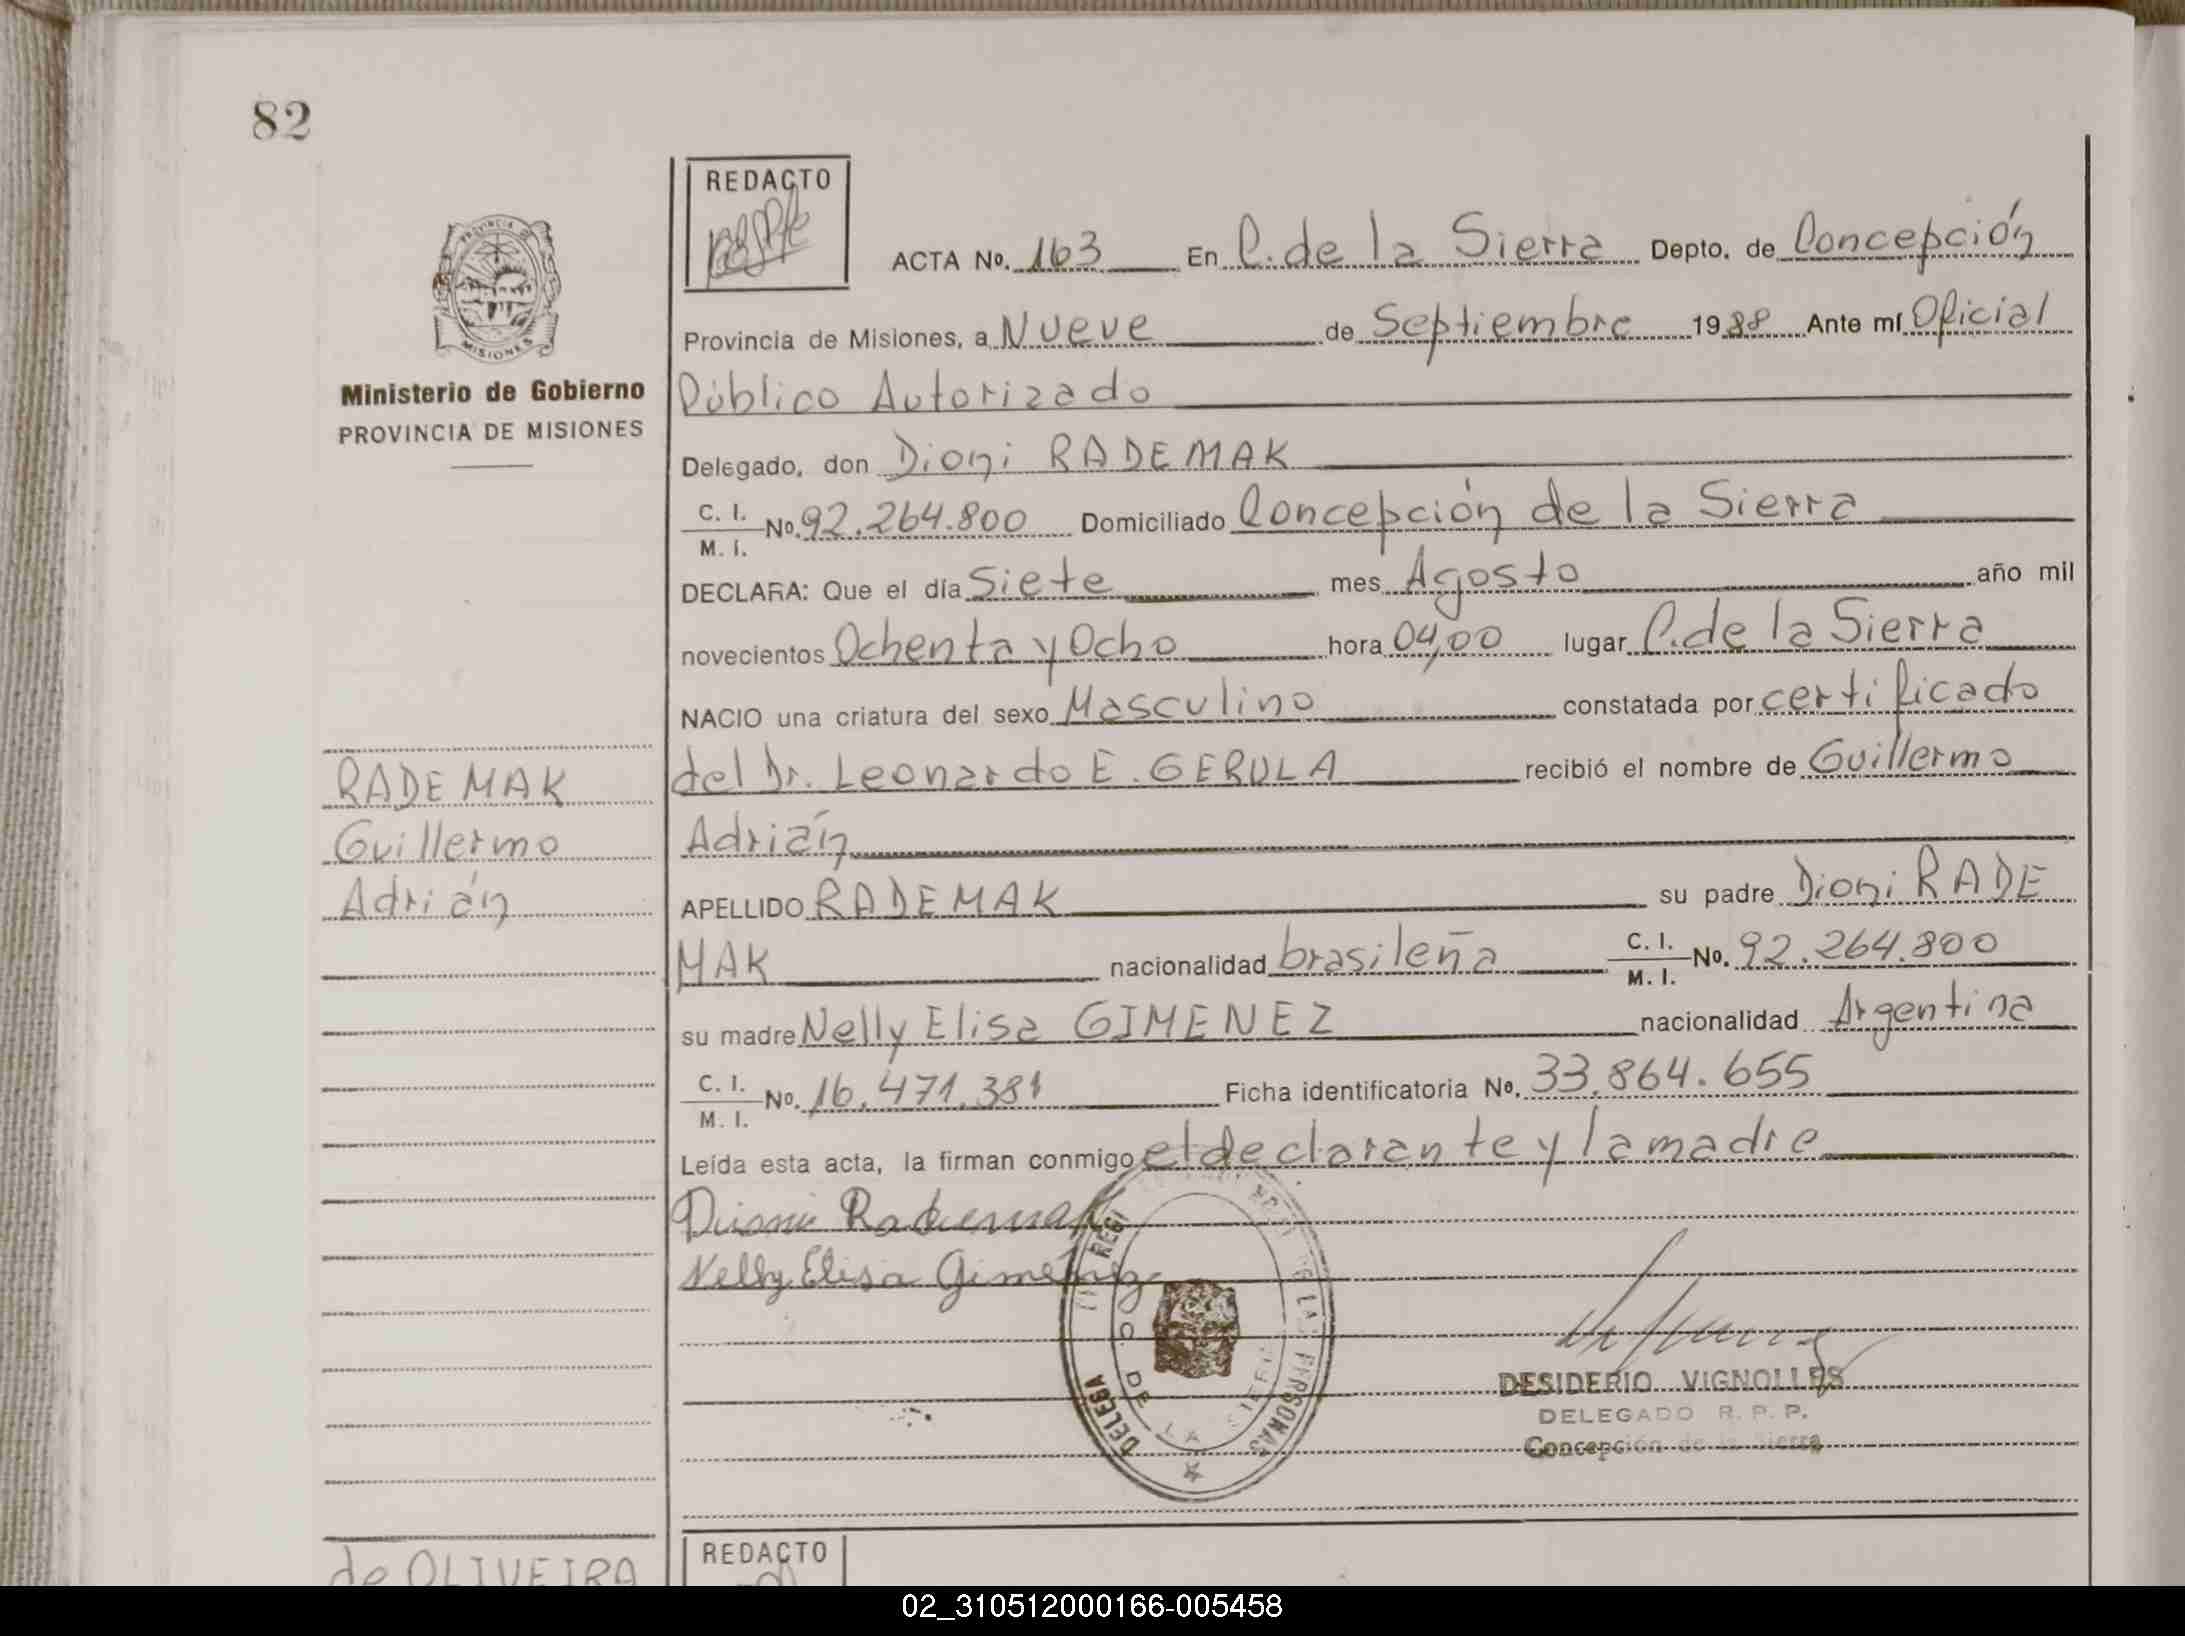 82
PROVINCIA DE
MISIONES
Ministerio de Gobierno
PROVINCIA DE MISIONES
RADEMAK
Guillermo
Adrián
REDACTO
ACTA No. 163 En C. de la Sierra Depto. de Concepción
Provincia de Misiones, a Nueve de Septiembre 1988 Ante mí Oficial
Público Autorizado
Delegado, don Dioni RADEMAK
C. I.
M. I. No. 92.264.800 Domiciliado Concepción de la Sierra
DECLARA: Que el día Siete mes Agosto año mil
novecientos Ochenta y Ocho hora 04,00 lugar C. de la Sierra
NACIO una criatura del sexo Masculino constatada por certificado
del Dr. Leonardo E. GERULA recibió el nombre de Guillermo
Adrián
APELLIDO RADEMAK su padre Dioni RADE
MAK nacionalidad brasileña C. I. M. I. No. 92.264.800
su madre Nelly Elisa GIMENEZ nacionalidad Argentina
C. I.
M. I. No. 16.471.381 Ficha identificatoria No. 33.864.655
Leída esta acta, la firman conmigo el declarante y la madre
Dioni Rademak
Nelly Elisa Giménez
DELEGA REGI DE LAS PERSONAS
C. DE LA
DESIDERIO VIGNOLLES
DELEGADO R. P. P.
Concepción de la Sierra
de OLIVEIRA
REDACTO
02_310512000166-005458